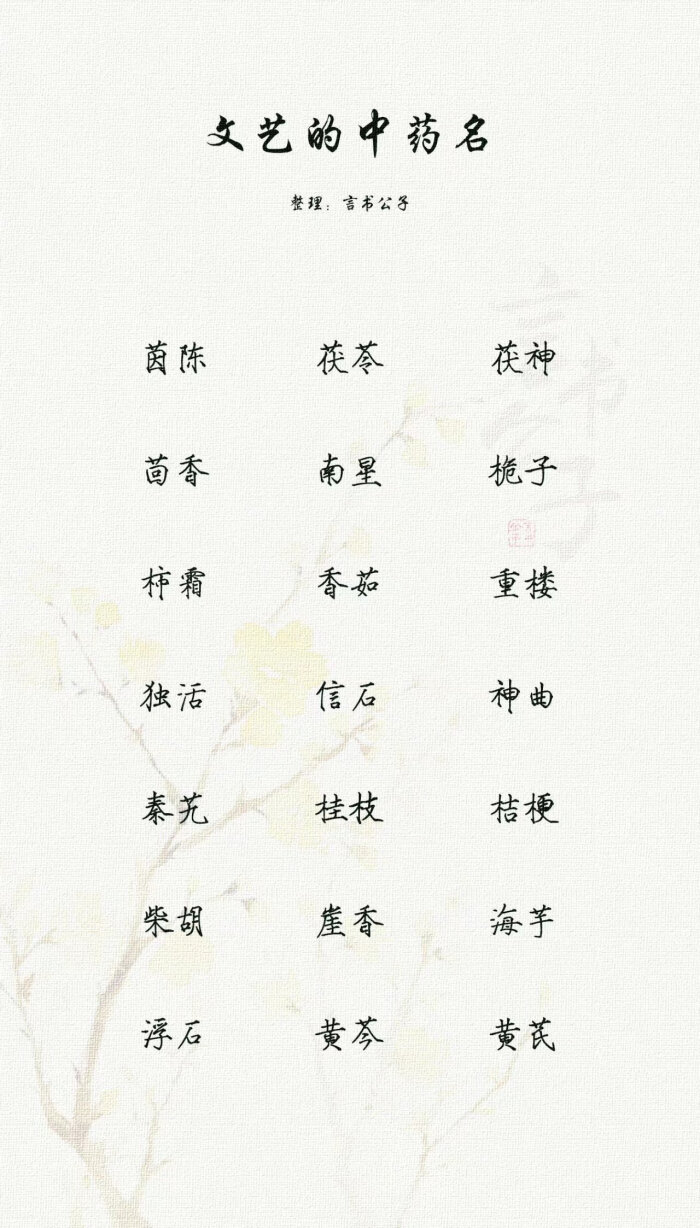 文艺的中药名
整理：言书公子
茵陈 茯苓 茯神
茴香 南星 桅子
柿霜 香茹 重楼
独活 信石 神曲
秦艽 桂枝 桔梗
柴胡 崖香 海芋
浮石 黄芩 黄芪
言书公子